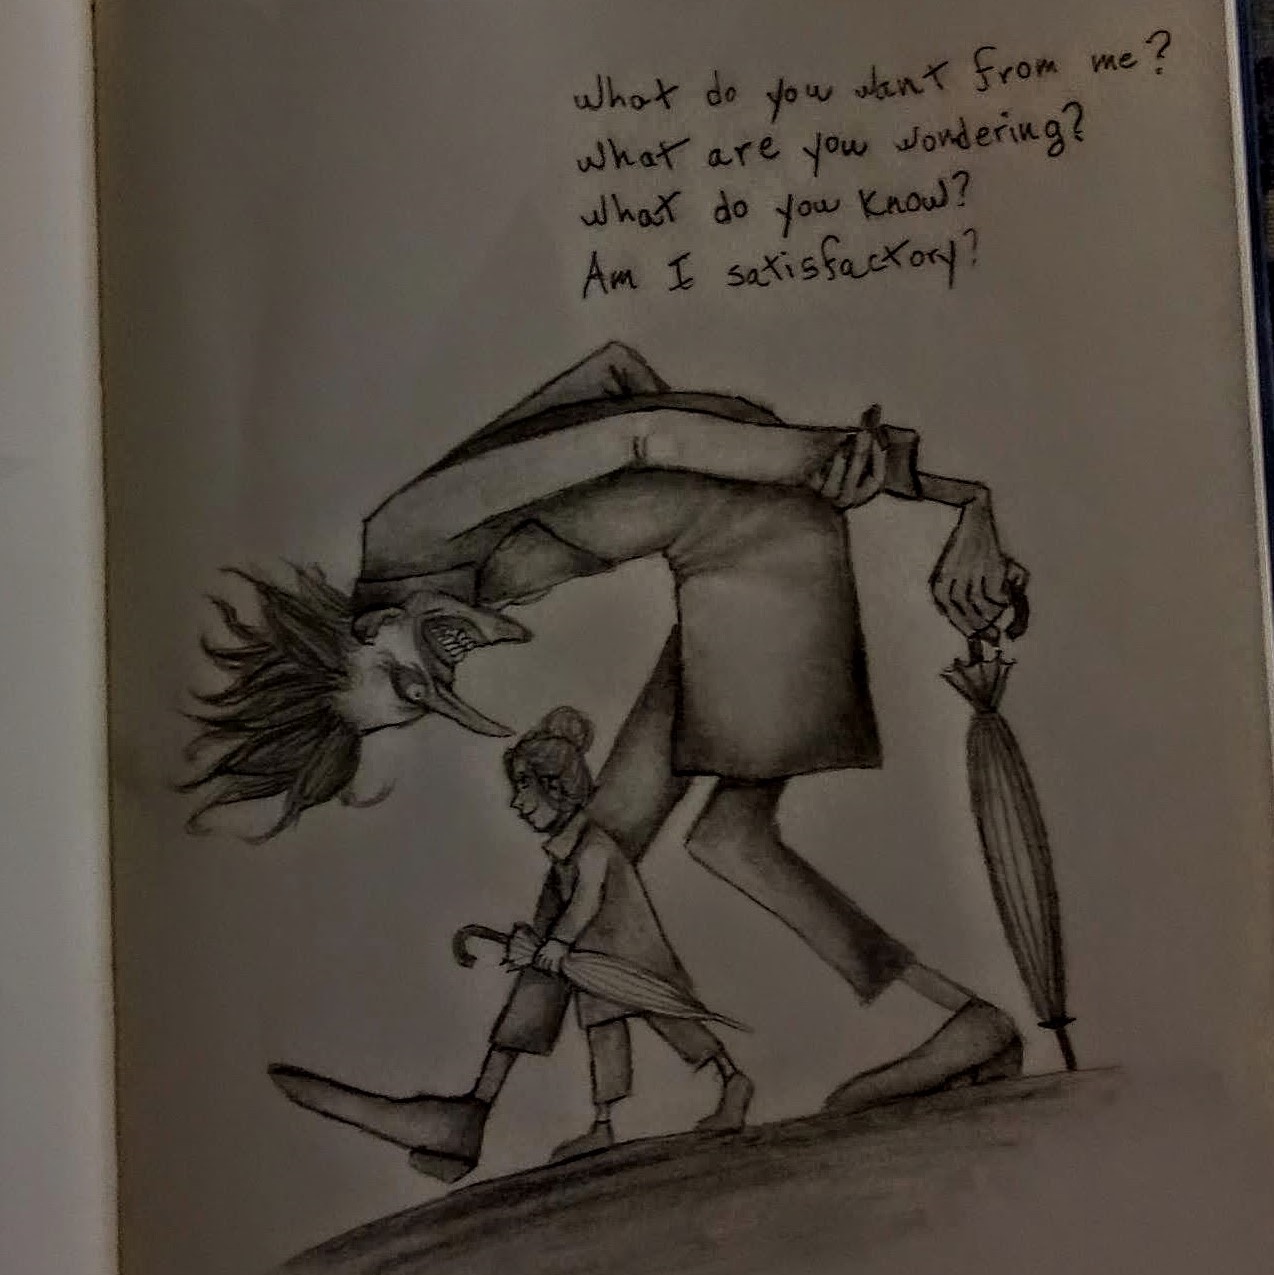 What do you want from me?
What are you wondering?
What do you know?
Am I satisfactory?